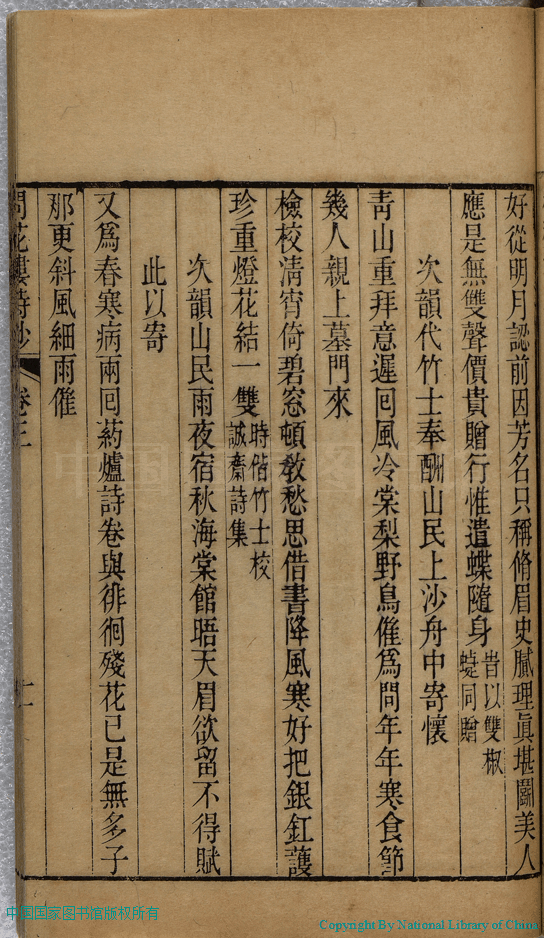 好從明月認前因芳名只稱脩眉史膩理眞堪鬭美人
應是無雙聲價貴贈行惟遣蝶隨身皆以雙椒蜨同贈
次韻代竹士奉酬山民上沙舟中寄懷
靑山重拜意遲回風冷棠梨野鳥催爲問年年寒食節
幾人親上墓門來
檢校淸宵倚碧窓頓敎愁思借書降風寒好把銀釭護
珍重燈花結一雙時偕竹士校誠齋詩集
次韻山民雨夜宿秋海棠館晤天眉欲留不得賦
此以寄
又爲春寒病兩回葯爐詩卷與徘徊殘花已是無多子
那更斜風細雨催
問花樓詩鈔 卷三
十一
中国国家图书馆版权所有
Copyright By National Library of China